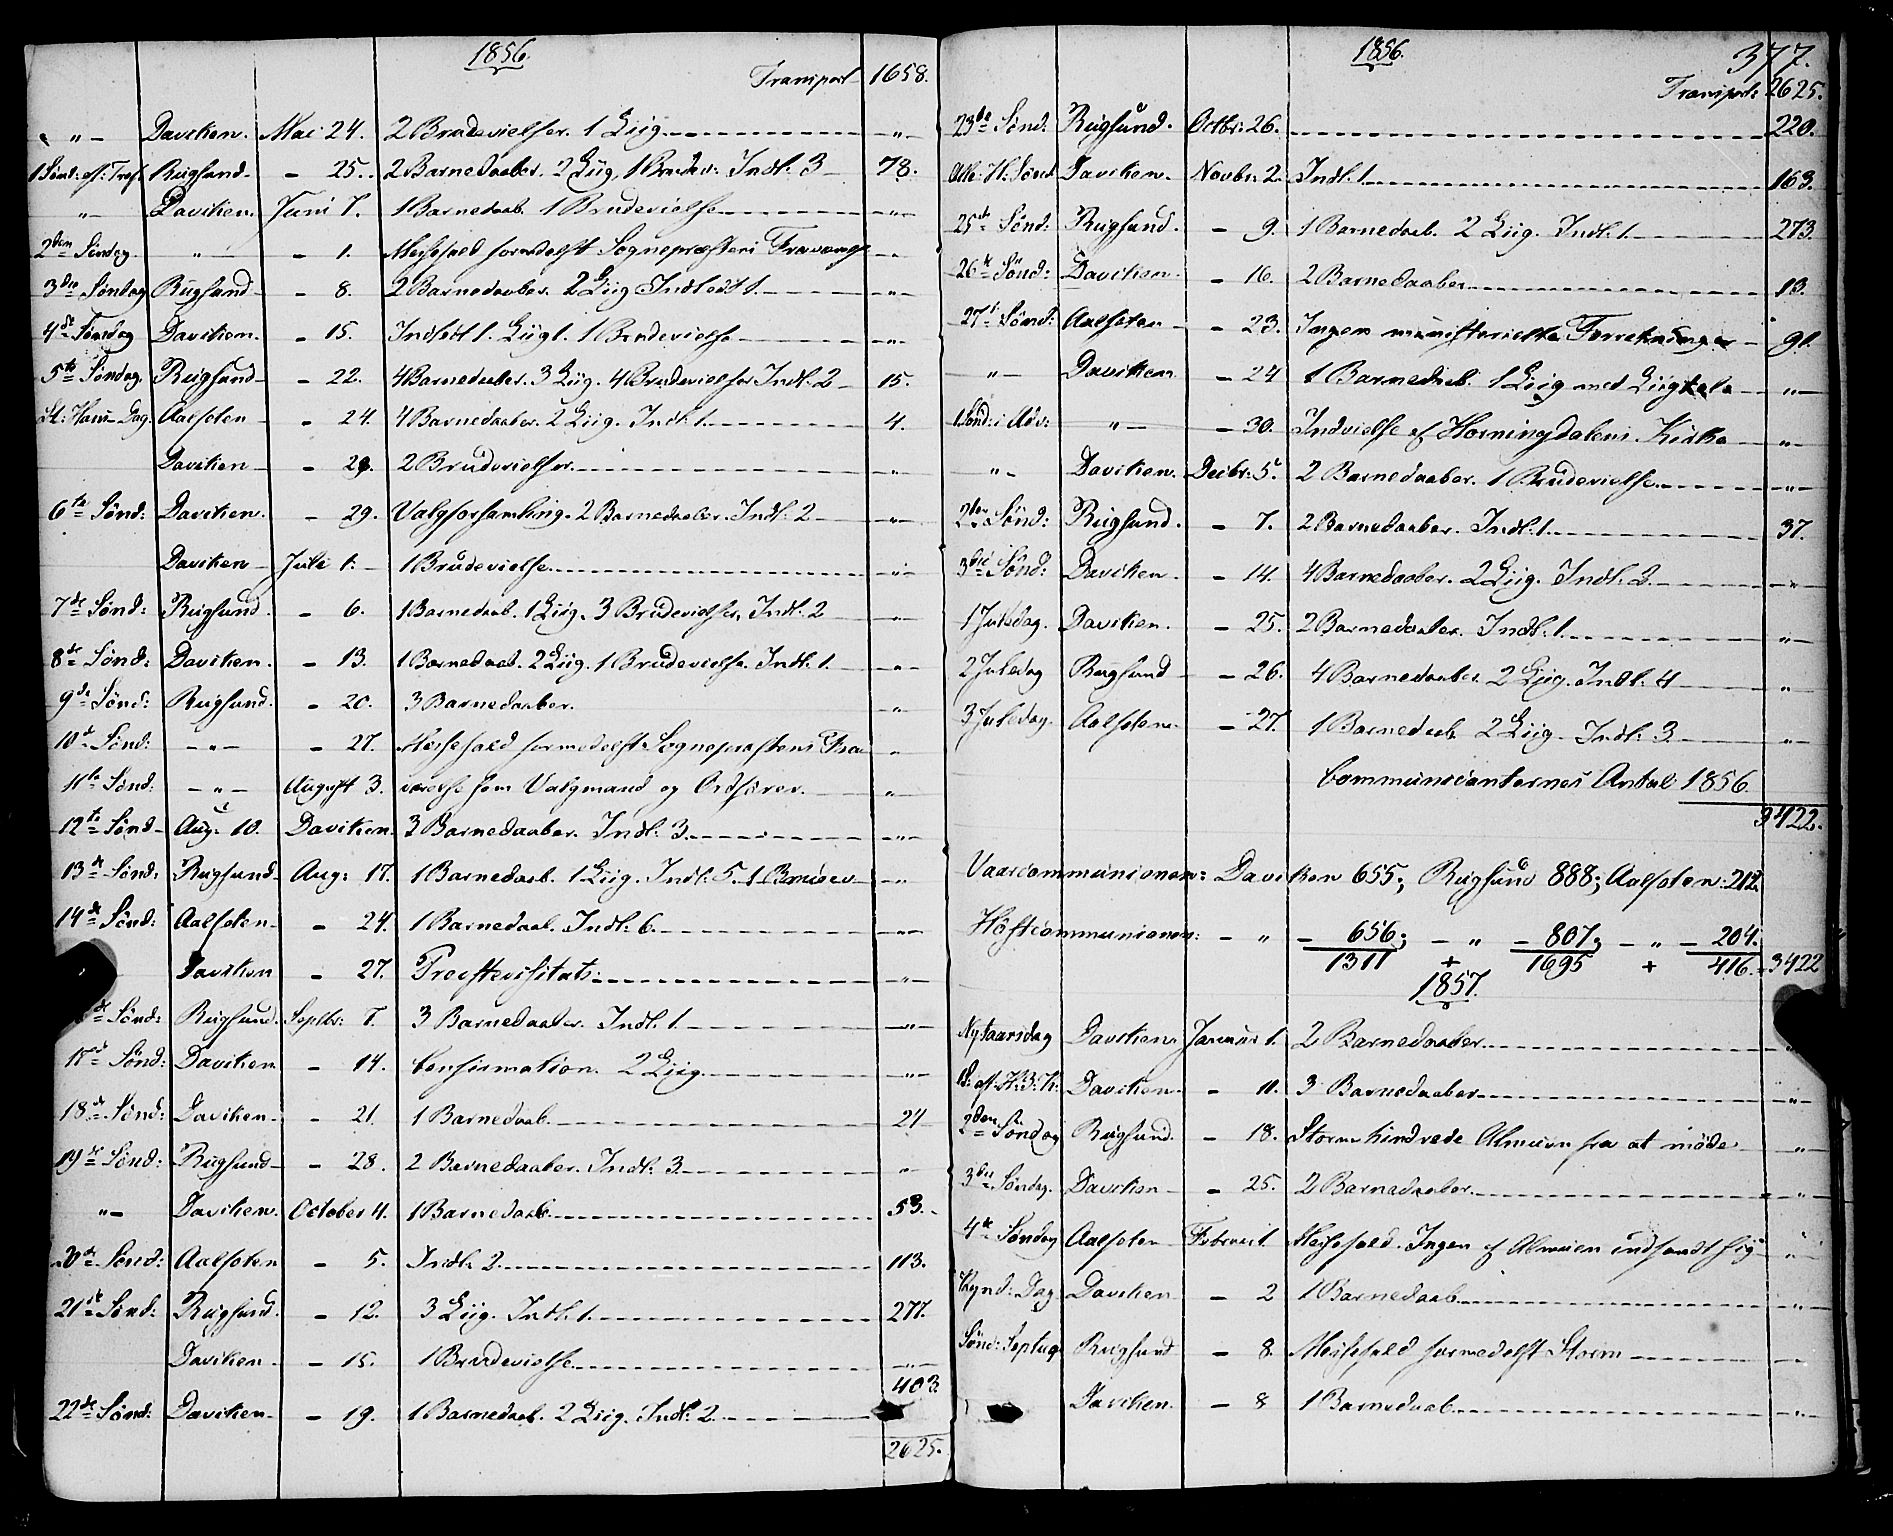 1856.
Transport 1658.
„ – Daviken. Mai 24. 2 Brudevielser. 1 Liig „
1 Sønd: ef: Tref. Rugsund – 25. 2 Barnedaaber. 2 Liig, 1 Brudev: Indl. 3 78.
„ Daviken. Juni 7. 1 Barnedaab. 1 Brudevielse „
2den Søndag „ – 1. Messefald formedelst Sognepræstens Fravær „
3die Søndag Rugsund – 8. 2 Barnedaaber. 2 Liig Indledt 1. „
4de Søndag Daviken. – 15. Indledt 1. Liig 1. 1 Brudevielse „
5te Søndag. Rugsund – 22. 4 Barnedaaber. 3 Liig. 4 Brudevielser Indl. 2 15.
St: Hans Dag. Aalfoten – 24. 4 Barnedaaber. 2 Liig. Indl: 1. 4.
Daviken – 29. 2 Brudevielser. „
6te Sønd: Daviken. – 29. Valgforsamling. 2 Barnedaaber. Indl. 2 „
Daviken Juli 1. 1 Brudevielse. „
7de Sønd: Rugsund. – 6. 1 Barnedaab. 1 Liig. 3 Brudevielser. Indl. 2 „
8de Sønd: Daviken. – 13. 1 Barnedaab. 2 Liig. 1 Brudevielse. Indl. 1. „
9de Sønd: Rugsund. – 20. 3 Barnedaaber. „
10de Sønd: „ – 27. Messefald formedelst Sognepræstens Fra „
11te Sønd: „ August 3. værelse som Valgmand og Ordfører. „
12te Sønd Aug. 10. Daviken. 3 Barnedaaber. Indl: 3. „
13de Sønd: Rugsund Aug: 17. 1 Barnedaab. 1 Liig. Indl: 5. 1 Brudev „
14de Sønd: Aalfoten – 24. 1 Barnedaab. Indl: 6. „
Daviken – 27. Proostevisitats: „
de Sønd: Rugsund. Septbr: 7. 3 Barnedaaber. Indl: 1. „
17de Sønd: Daviken. – 14. Confirmation. 2 Liig. „
18de Sønd: Daviken. – 21. 1 Barnedaab. 24
19de Sønd: Rugsund – 28. 2 Barnedaaber. Indl: 3. „
„ – Daviken. October 4. 1 Barnedaab. 53.
20de Sønd: Aalfoten – 5. Indl: 2. 113.
21de Sønd: Rugsund. – 12. 3 Liig. Indl: 1. 277.
Daviken. – 15. 1 Brudevielse. „
22de Sønd: Daviken. – 19. 1 Barnedaab. 2 Liig. Indl: 2. 403.
2625.
1856. 377.
Transport: 2625.
23de Sønd: Rugsund. Octbr: 26. 220.
Alle H: Sønd Daviken. Novbr: 2. Indl: 1. 163.
25de Sønd: Rugsund. – 9. 1 Barnedaab. 2 Liig. Indl: 1. 273.
26de Sønd: Daviken. – 16. 2 Barnedaaber. 13.
27de Sønd: Aalfoten – 23. Ingen ministerielle Forretninger – 91.
„ Daviken – 24 1 Barnedaab. 1 Liig med Liigtale „
1 Sønd: i Adv: „ – 30. Indvielse af Horningdalens Kirke „
„ Daviken. Decbr: 5. 2 Barnedaaber. 1 Brudevielse. „
2den Sønd: Rugsund. – 7. 2 Barnedaaber. Indl: 1. 37.
3die Sønd: Daviken. – 14. 4 Barnedaaber. 2 Liig. Indl. 3. „
1 Juledag. Daviken. – 25. 2 Barnedaaber. Indl: 1. „
2 Juledag Rugsund – 26. 4 Barnedaaber 2 Liig. Indl: 4 „
3 Juledag. Aalfoten. – 27. 1 Barnedaab 2 Liig. Indl: 3. „
Communicanternes Antal 1856.
3422.
Vaarcommunionen: Daviken 655; Rugsund 888; Aalfoten: 212.
Høstcommunionen: – „ – 656; – „ – 807; – „ – 204.
1311 + 1695 + 416. = 3422
1857.
Nytaarsdag Daviken. Januar 1. 2 Barnedaaber. „
1 S: ef: H: 3: K: Daviken. – 11. 3 Barnedaaber. „
2den Søndag Rugsund. – 18. Storm hindrede Almuen fra at møde „
3die Søndag. Daviken – 25. 2 Barnedaaber. „
4de Søndag Aalfoten Februar 1. Messefald. Ingen af Almuen indfandt sig „
Kynd: Dag Daviken – 2 1 Barnedaab. „
Sønd: Septug Rugsund – 8. Messefald formedelst Storm „
Daviken. – 8 1 Barnedaab. „